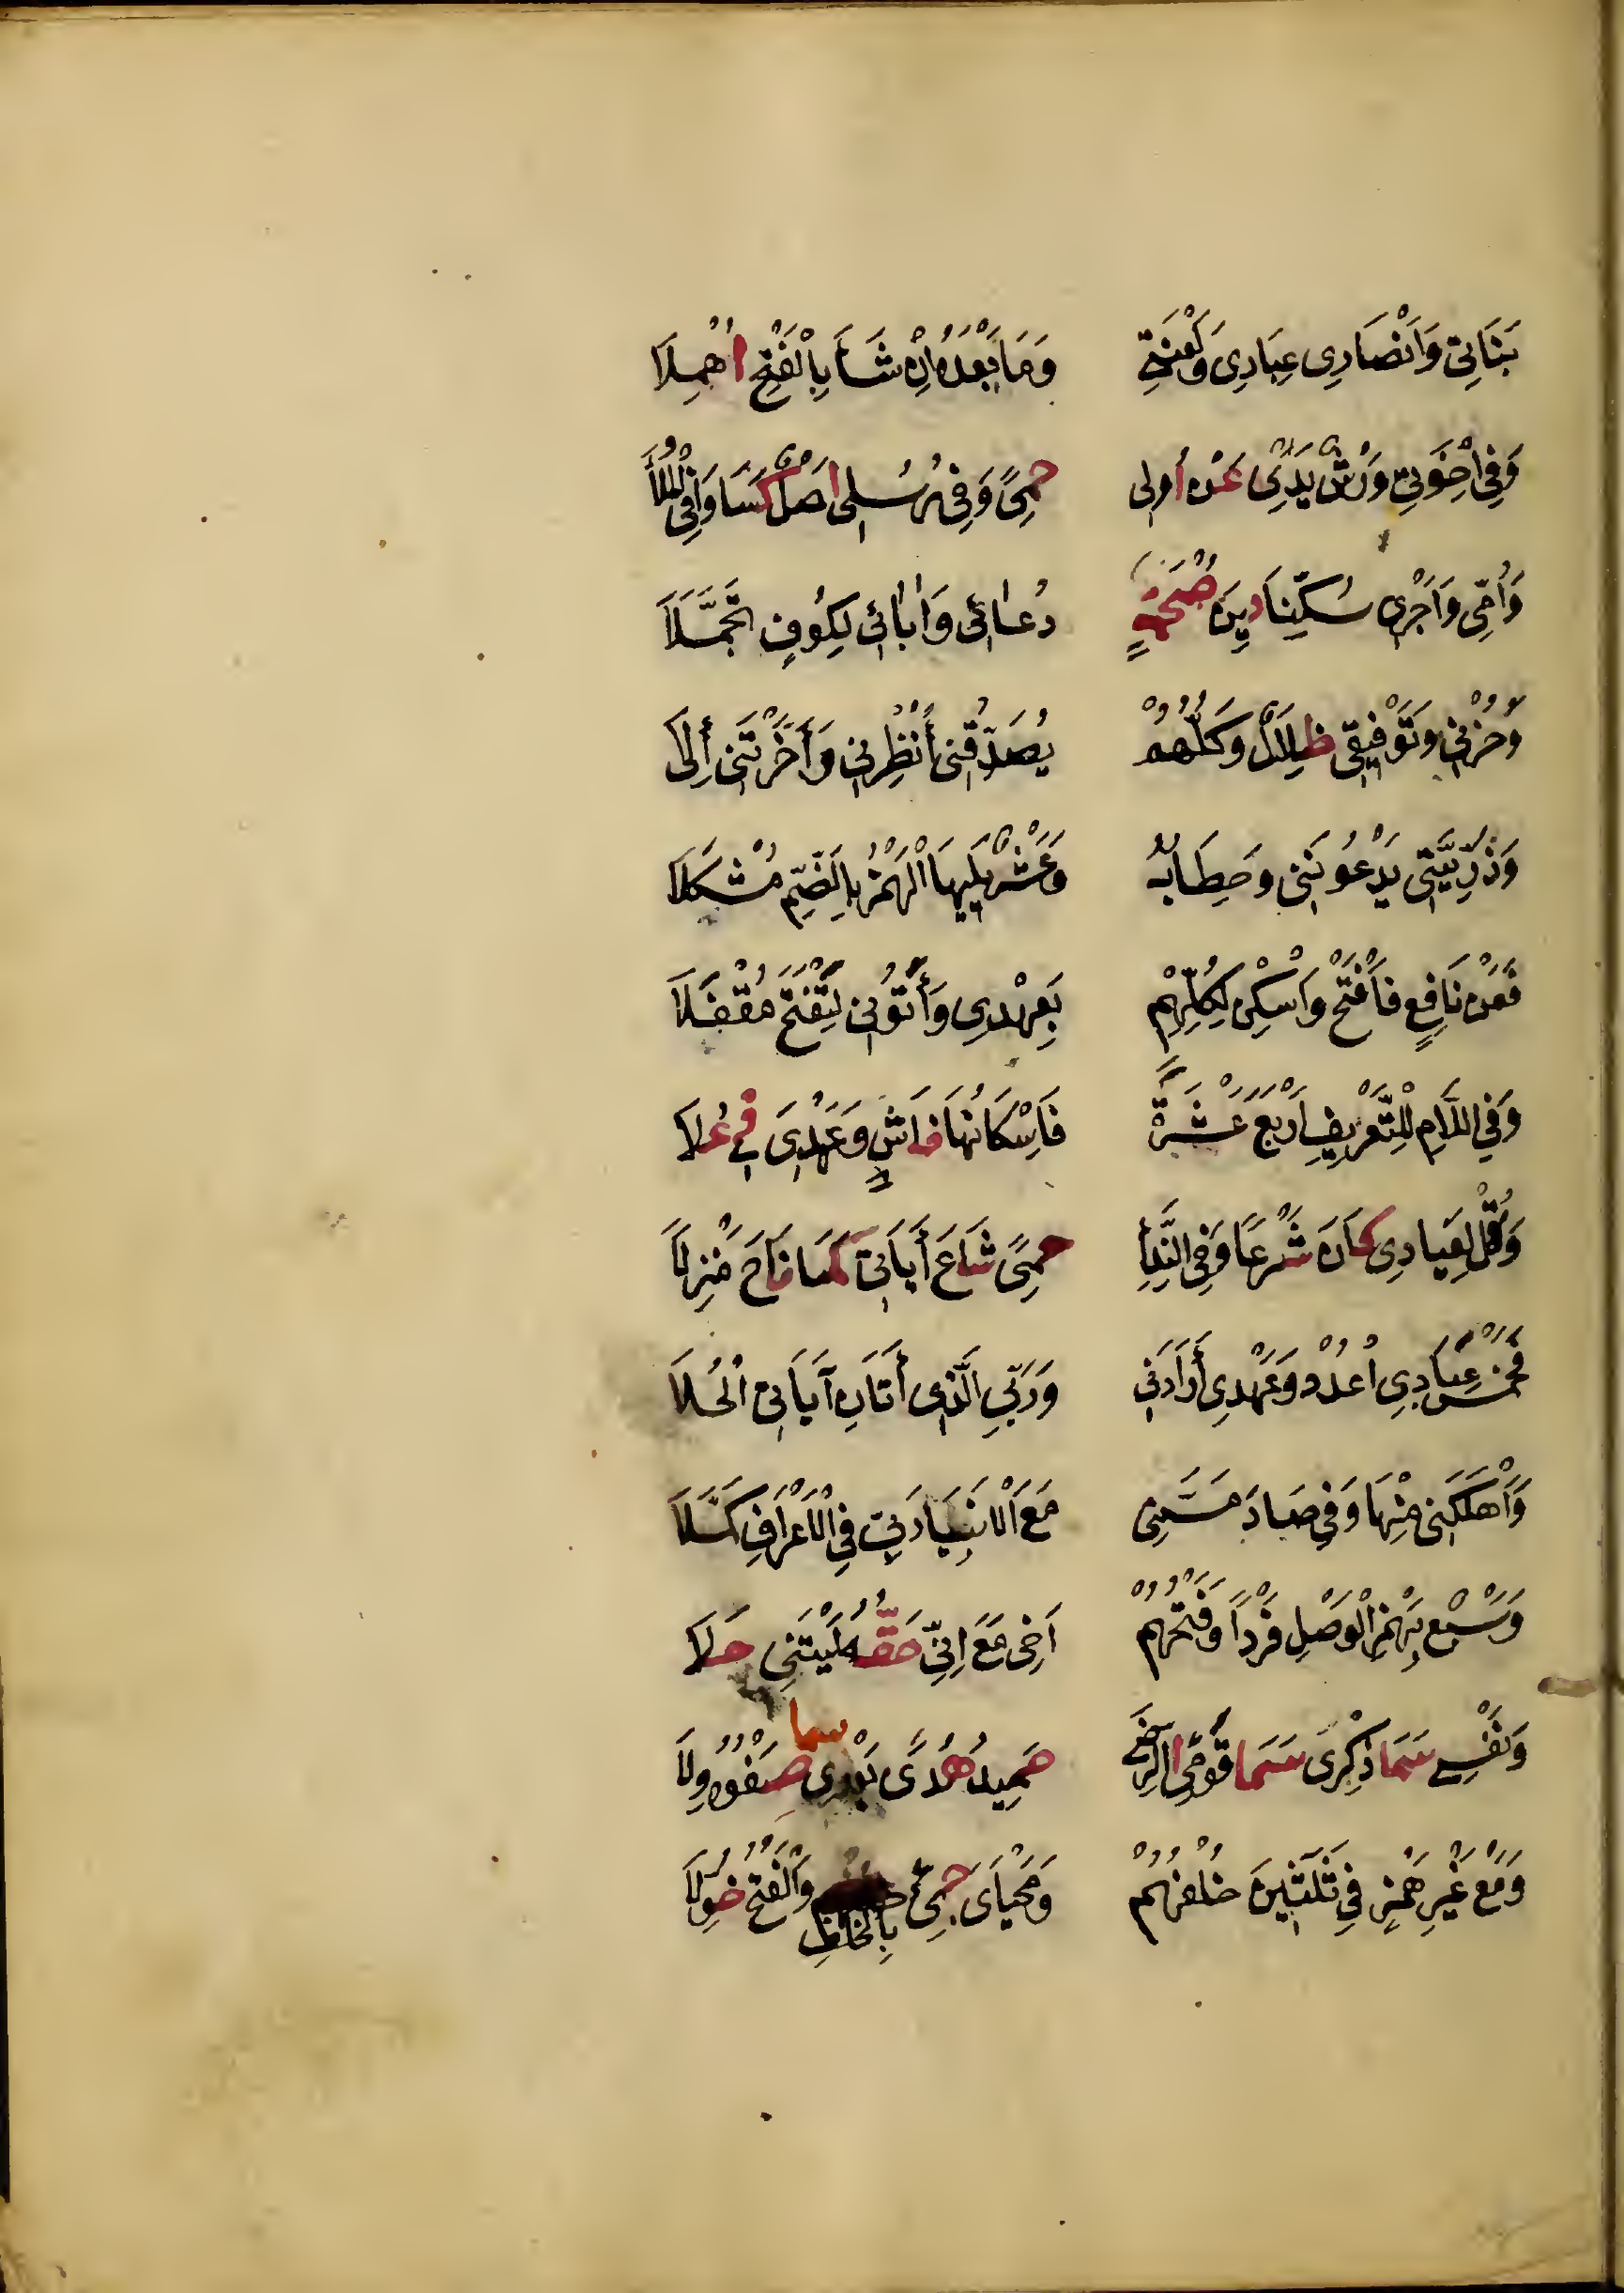 بَنَاتِى وَاَنْصَارِى عِبَادِى وَلَعْنَتِى وَمَا بَعْدَهُ اِنْ شَاءَ بِالْفَتْحِ اُهْمِلَا
وَفِى اِخْوَتِى وَرْشٌ يَدِى عَنْ اُولِى حِمًى وَفِى رُسُلِى اَصْلٌ كَسَا وَافِىَ الْمُلَا
وَاُمِّى وَاَجْرِى سُكِّنَا دِينَ صُحْبَةٍ دُعَائِى وَاٰبَائِى لِكُوفٍ تَجَمَّلَا
وَحُزْنِى وَتَوْفِيقِى ظِلَالٌ وَكُلُّهُمْ يُصَدِّقْنِى أَنْظِرْنِى وَأَخَّرْتَنِى إِلَى
وَذُرِّيَّتِى يَدْعُونَنِى وَخِطَابُهُ وَعَشْرٌ يَلِيهَا الْهَمْزُ بِالضَّمِّ مُشْكَلَا
فَعَنْ نَافِعٍ فَافْتَحْ وَاَسْكِنْ لِكُلِّهِمْ بِعَهْدِى وَأَتُونِى لِتَفْتَحَ مُقْفَلَا
وَفِى اللَّامِ لِلتَّعْرِيفِ اَرْبَعُ عَشْرَةٍ فَاِسْكَانُهَا فَاشٍ وَعَهْدِىَ فِى عُلَا
وَقُلْ لِعِبَادِى كَانَ شَرْعًا وَفِى النِّدَا حِمًى شَاعَ أَيَاتِى كَمَا فَاحَ مَنْزِلَا
فَخَمْسَ عِبَادِى اعْدُدْ وَعَهْدِى أَرَادَنِى وَرَبِّى الَّذِى أَتَانِ آيَاتِى الْحُلَا
وَاَهْلَكَنِى مِنْهَا وَفِى صَادَ مَسَّنِى مَعَ الْاَنْبِيَا رَبِّى فِى الْاَعْرَافِ كَمَّلَا
وَسَبْعٌ بِهَمْزِ الْوَصْلِ فَرْدًا وَفَتْحُهُمْ اَخِى مَعَ اِنِّى حَقُّهُ لَيْتَنِى حَلَا
وَنَفْسِى سَمَا ذِكْرِى سَمَا قَوْمِى الرِّضَى حَمِيدُ هُدًى بَعْدِى سما صَفْوُهُ وِلَا
وَمَعْ غَيْرِ هَمْزٍ فِى ثَلَاثِينَ خُلْفُهُمْ وَمَحْيَاىَ جِئْ بِالْخُلْفِ وَالْفَتْحُ خُوِّلَا